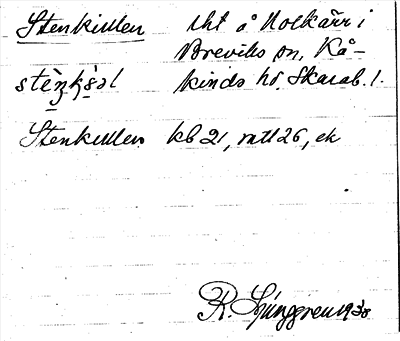 Stenkullen lht å Holkärr i
Breviks sn, Kå-
kinds hd. Skarab. l.
Stenkullen kb 21, mtl 26, ek
R. Ljunggren 1938